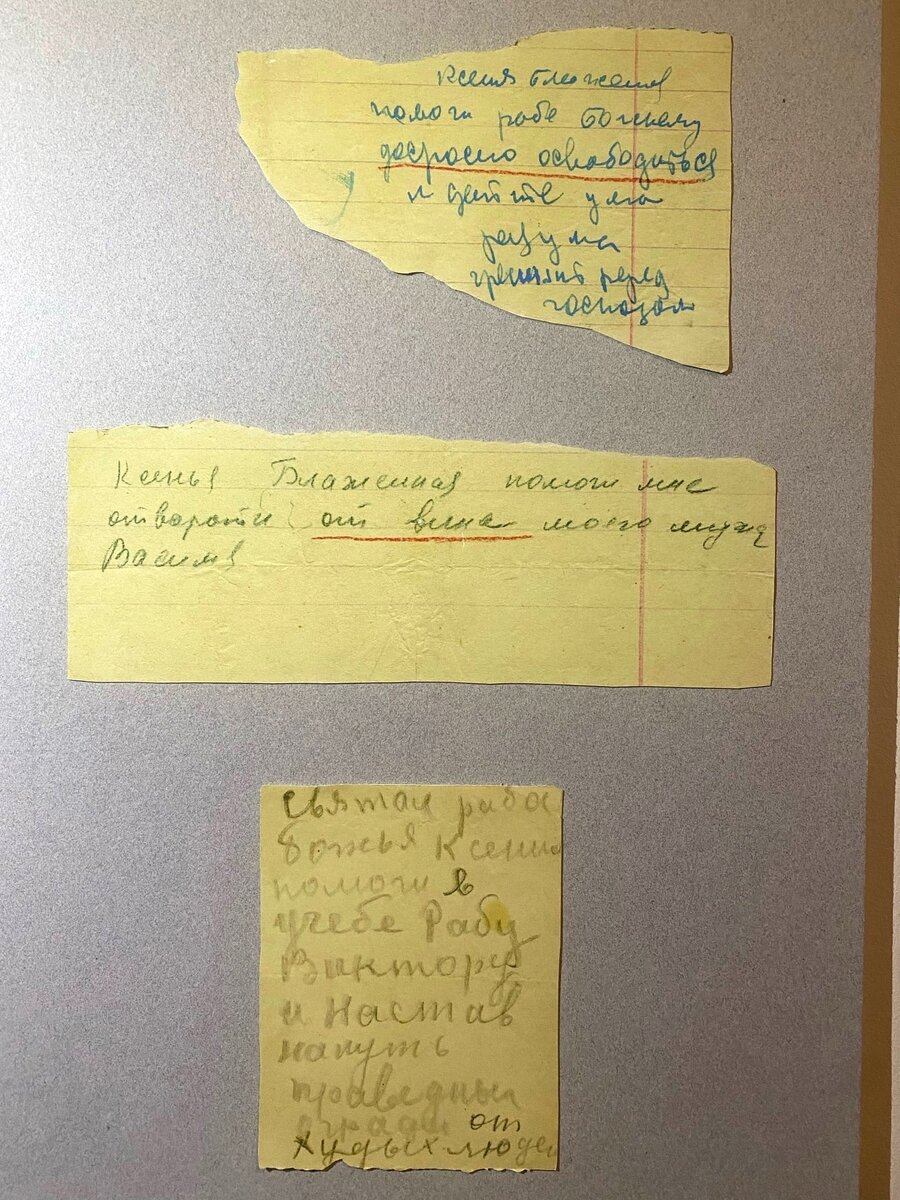 Ксения блаженая
помоги рабе Божему
досрочно освободиться
и дайте ума
разума
грешный перед
господом
Ксенья Блаженная помоги мне
отворотить от вина моего мужа
Василия
Святая раба
божья Ксения
помоги в
учебе Рабу
Виктору
и Настав
напуть
праведный
от
худых людей